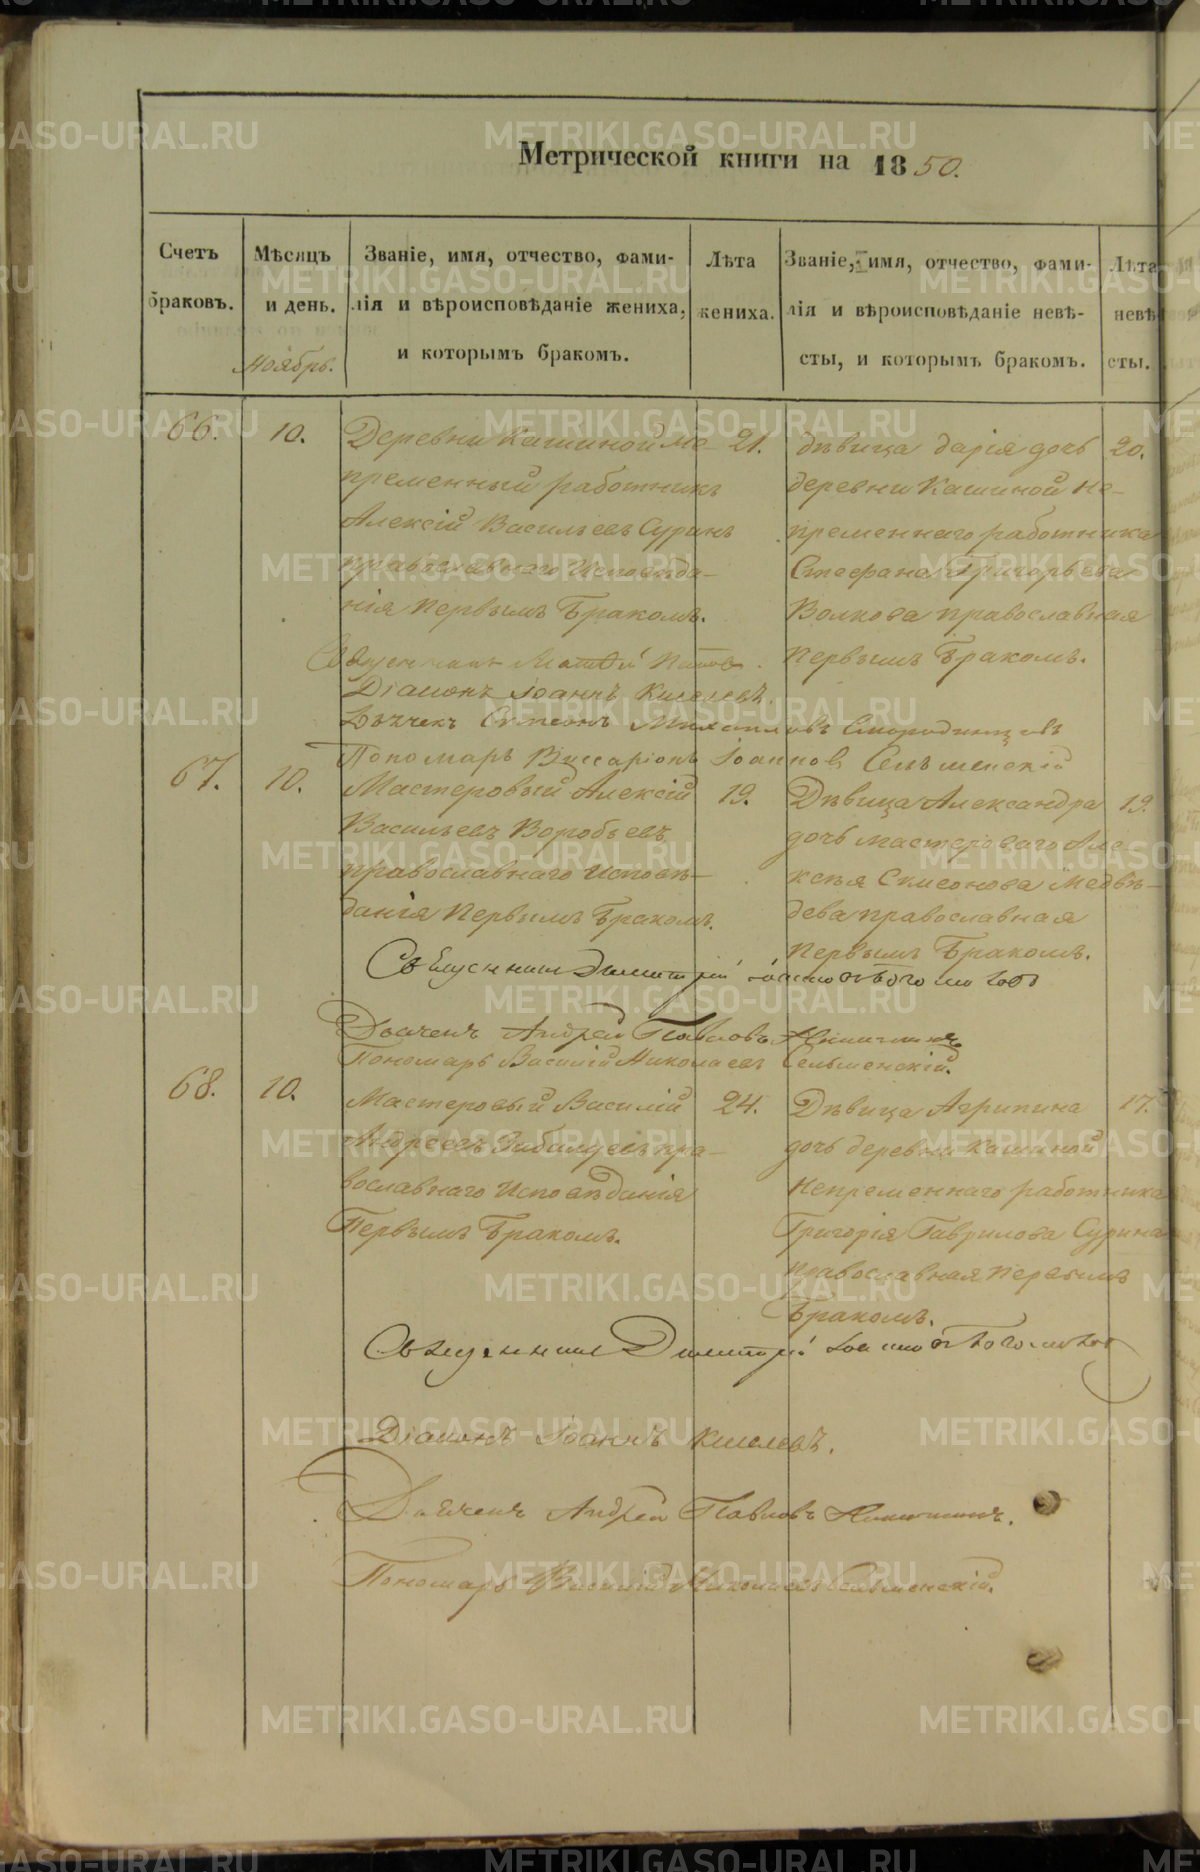 Метрической книги на 1850.
Счетъ браковъ.
Мѣсяцъ и день.
Званіе, имя, отчество, фами-
лія и вѣроисповѣданіе жениха,
и которымъ бракомъ.
Лѣта
жениха.
Званіе, имя, отчество, фами-
лія и вѣроисповѣданіе невѣ-
сты, и которымъ бракомъ.
Лѣта
невѣ
сты.
Ноябрь.
66.
10.
Деревни Кашиной Не-
пременный работникъ
Алексій Васильевъ Суринъ
православнаго Исповѣда-
нія Первымъ Бракомъ.
21.
дѣвица дарія дочь
деревни Кашиной Не-
пременнаго работника
Стефана Григорьева
Волкова православная
Первымъ Бракомъ.
20.
Священникъ Матѳей Поповъ.
Діаконъ Іоаннъ Киселевъ.
Дьячекъ Симеонъ Михаиловъ Смородинцевъ
Пономарь Виссаріонъ Іоанновъ Сельменскій
67.
10.
Мастеровый Алексій
Васильевъ Воробьевъ
православнаго Исповѣ-
данія Первымъ Бракомъ.
19.
Дѣвица Александра
дочь мастероваго Але-
ксѣя Симеонова Медвѣ-
дева православная
Первымъ Бракомъ.
19.
Священникъ Димитрій
Дьячекъ Андрей Павловъ
Пономарь Василій Николаевъ Сельменскій.
68.
10.
Мастеровый Василій
Андреевъ пра-
вославнаго Исповѣданія
Первымъ Бракомъ.
24.
Дѣвица Агрипина
дочь деревни Кашиной
Непременнаго работника
Григорія Гаврилова Сурина
православная Первымъ
Бракомъ.
17.
Священникъ Димитрій
Діаконъ Іоаннъ Киселевъ.
Дьячекъ Андрей Павловъ
Пономарь Василій Николаевъ Сельменскій.
METRIKI.GASO-URAL.RU